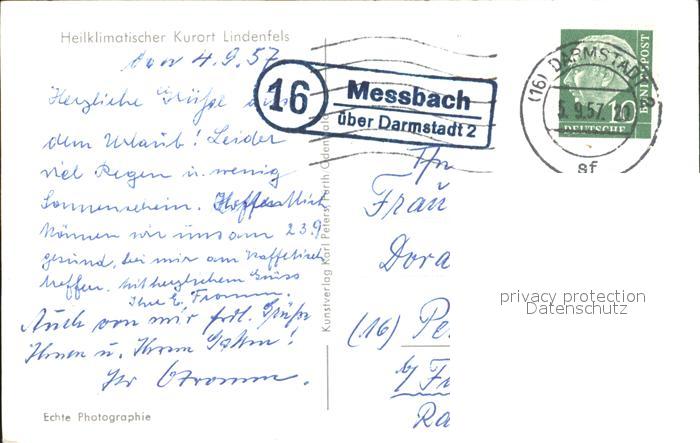 Heilklimatischer Kurort Lindenfels
den 4.9.57
Herzliche Grüße aus
dem Urlaub! Leider
viel Regen u. wenig
Sonnenschein. Hoffentlich
können wir uns am 23.9
gesund, bei mir am Kaffetisch
treffen. Mit herzlichem Gruss
Ihre E. Fromm.
Auch von mir frdl. Grüße
Ihnen u. Ihrem Gatten!
Ihr Fromm.
Echte Photographie
Kunstverlag Karl Peters, Fürth Odenwald
16
Messbach
über Darmstadt 2
(16) DARMSTADT 2
5.9.57. 21
sf
10
DEUTSCHE
BUNDESPOST
Frau
Dora
(16) Pe
b/ Fr
Ra
privacy protection
Datenschutz